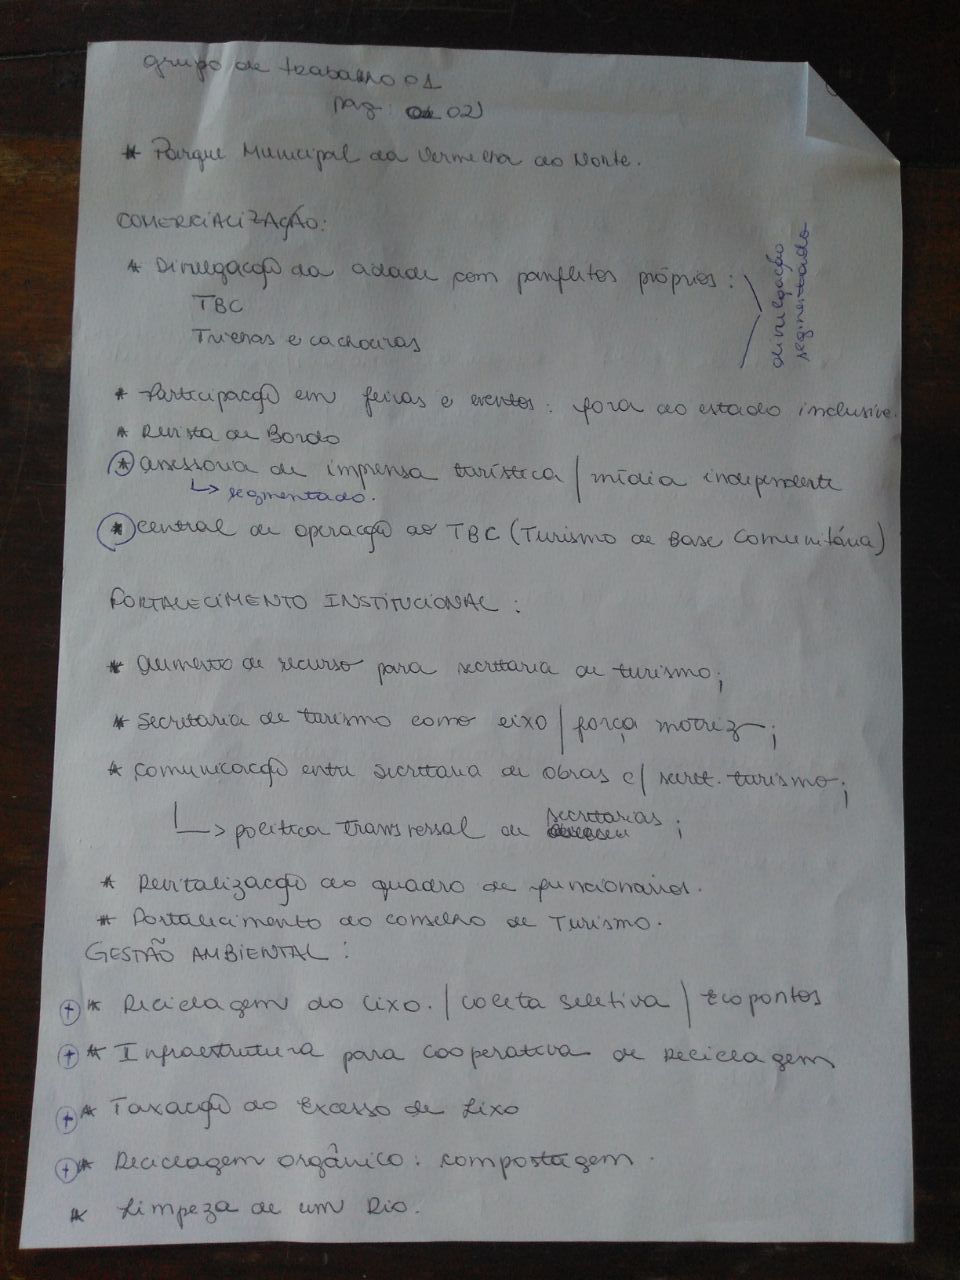 grupo de trabalho 01
pag: 02)
* Parque Municipal da Vermelha do Norte.
COMERCIALIZAÇÃO:
* Divulgação da cidade com panfletos próprios:
TBC
Trilhas e cachoeiras
divulgação
segmentado
* Participação em feiras e eventos: fora do estado inclusive.
* Revista de Bordo
* assessoria de imprensa turística / mídia independente
↳ segmentado.
* central de operação do TBC (Turismo de Base Comunitária)
FORTALECIMENTO INSTITUCIONAL:
* aumento de recurso para secretaria de turismo;
* Secretaria de turismo como eixo / força motriz;
* comunicação entre Secretaria de obras c/ secret. turismo;
↳ política transversal de secretarias;
* Revitalização do quadro de funcionários.
* Fortalecimento do Conselho de Turismo.
GESTÃO AMBIENTAL:
+ * Reciclagem do lixo. / coleta seletiva / Ecopontos
+ * Infraestrutura para cooperativa de Reciclagem
+ * Taxação do Excesso de Lixo
+ * Reciclagem orgânico: compostagem.
* Limpeza de um Rio.